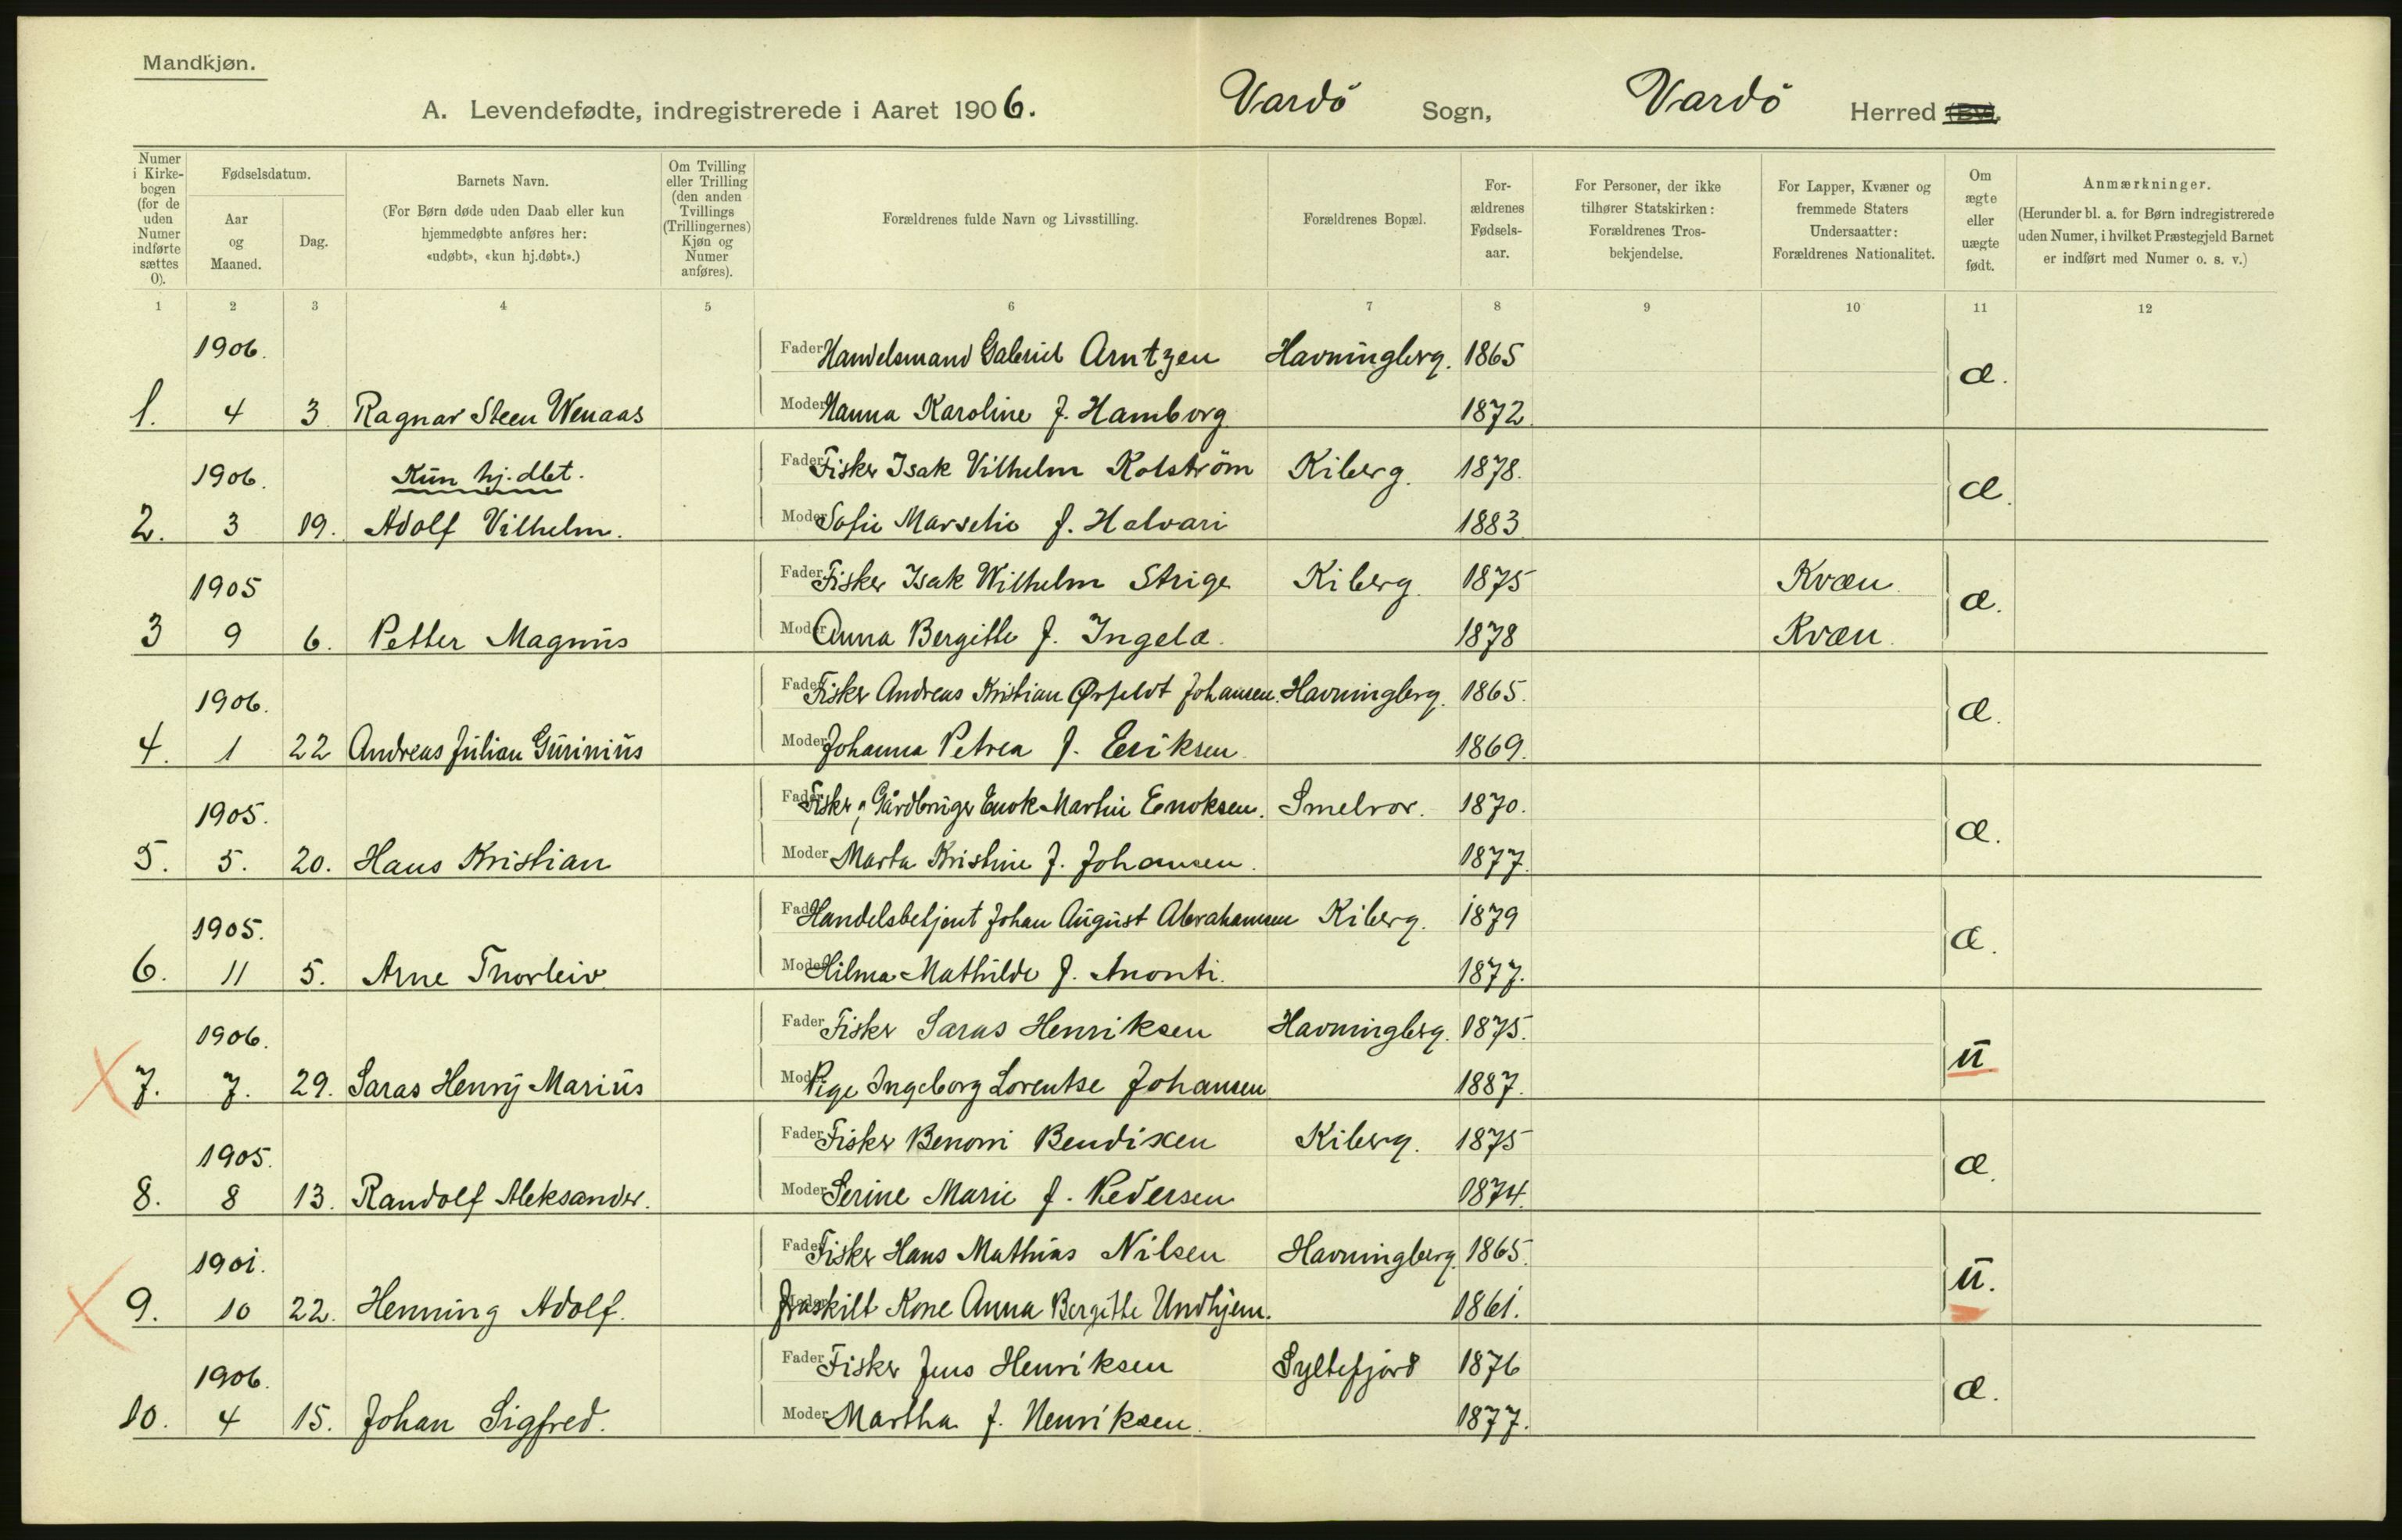 Mandkjøn.
A. Levendefødte, indregistrerede i Aaret 1906. Vardö Sogn, Vardö Herred (By).
Numer i Kirkebogen (for de uden Numer indførte sættes 0).
Fødselsdatum.
Aar og Maaned.
Dag.
Barnets Navn.
(For Børn døde uden Daab eller kun hjemmedøbte anføres her: «udøbt», «kun hj.døbt».)
Om Tvilling eller Trilling (den anden Tvillings (Trillingernes) Kjøn og Numer anføres).
Forældrenes fulde Navn og Livsstilling.
Forældrenes Bopæl.
Forældrenes Fødselsaar.
For Personer, der ikke tilhører Statskirken: Forældrenes Trosbekjendelse.
For Lapper, Kvæner og fremmede Staters Undersaatter: Forældrenes Nationalitet.
Om ægte eller uægte født.
Anmærkninger.
(Herunder bl. a. for Børn indregistrerede uden Numer, i hvilket Præstegjeld Barnet er indført med Numer o. s. v.)
1 2 3 4 5 6 7 8 9 10 11 12
1906. Fader Handelsmand Gabriel Arntzen Havningberg. 1865 æ.
1. 4 3 Ragnar Steen Wenaas Moder Hanna Karoline f. Hamborg 1872
1906. Kun hj. dbt. Fader Fisker Isak Vilhelm Kolström Kiberg. 1878. æ.
2. 3 19. Adolf Vilhelm. Moder Sofie Marselie f. Halvari 1883
1905 Fader Fisker Isak Wilhelm Strige Kiberg 1875 Kvæn. æ.
3 9 6. Petter Magnus Moder Anna Bergitte f. Ingelæ. 1878 Kvæn.
1906. Fader Fisker Andreas Kristian Ørfeldt Johansen. Havningberg. 1865. æ.
4. 1 22 Andreas Julian Gurinius Moder Johanna Petrea f. Eriksen. 1869.
1905. Fader Fisker og Gårdbruger Enok Martin Enoksen. Smelror. 1870. æ.
5. 5. 20. Hans Kristian Moder Marta Kristine f. Johansen. 1877.
1905. Fader Handelsbetjent Johan August Abrahamsen Kiberg. 1879 æ.
6. 11 5. Arne Thorleiv. Moder Hilma Mathilde f. Anonti. 1877.
1906. Fader Fisker Saras Henriksen Havningberg. 1875. u
7. 7. 29. Saras Henry Marius Moder Pige Ingeborg Lorentse Johansen 1887.
1905. Fader Fisker Benoni Bendixen Kiberg. 1875 æ.
8. 8 13. Randolf Aleksander. Moder Serine Marie f. Pedersen 1874.
1901. Fader Fisker Hans Mathias Nilsen Havningberg. 1865. u.
9. 10 22. Henning Adolf. Moder fraskilt Kone Anna Bergitte Undhjem. 1861.
1906. Fader Fisker Jens Henriksen Syltefjord 1876 æ.
10. 4 15. Johan Sigfred. Moder Martha f. Henriksen. 1877.